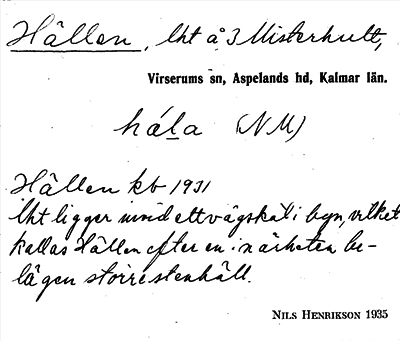 Hällen, lht å 3 Misterhult,
Virserums sn, Aspelands hd, Kalmar län.
håla (NM)
Hällen kb 1931
lht ligger invid ett vägskäl i byn, vilket
kallas Hällen efter en i närheten be-
lägen större stenhäll.
NILS HENRIKSON 1935